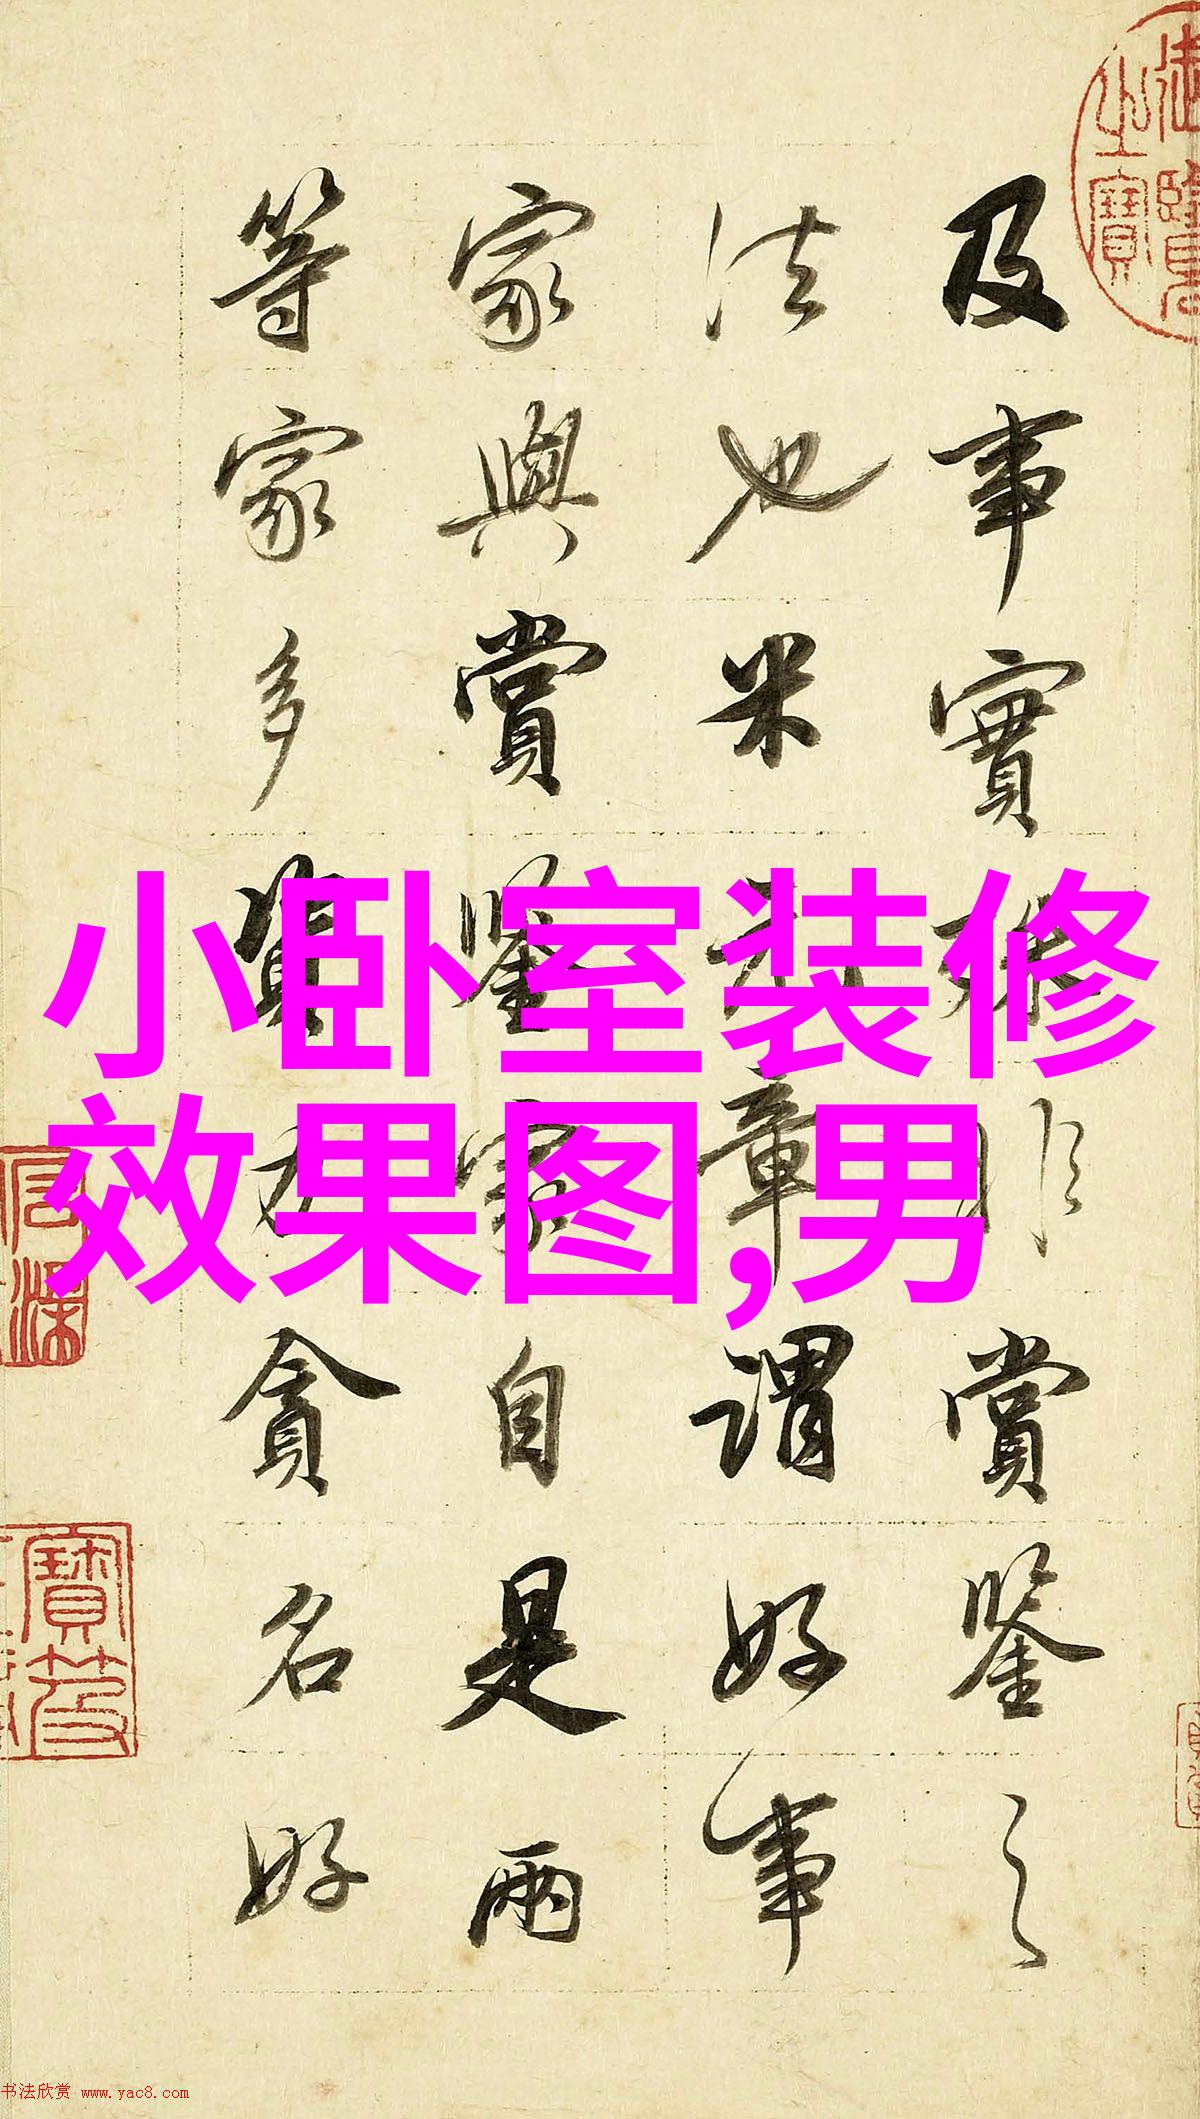 及事實殊非賞鑒之
法也米元章謂好事
家與賞鑒家自是兩
等家多資力貪名好
小卧室装修
效果图,男
书法欣赏 www.yac8.com